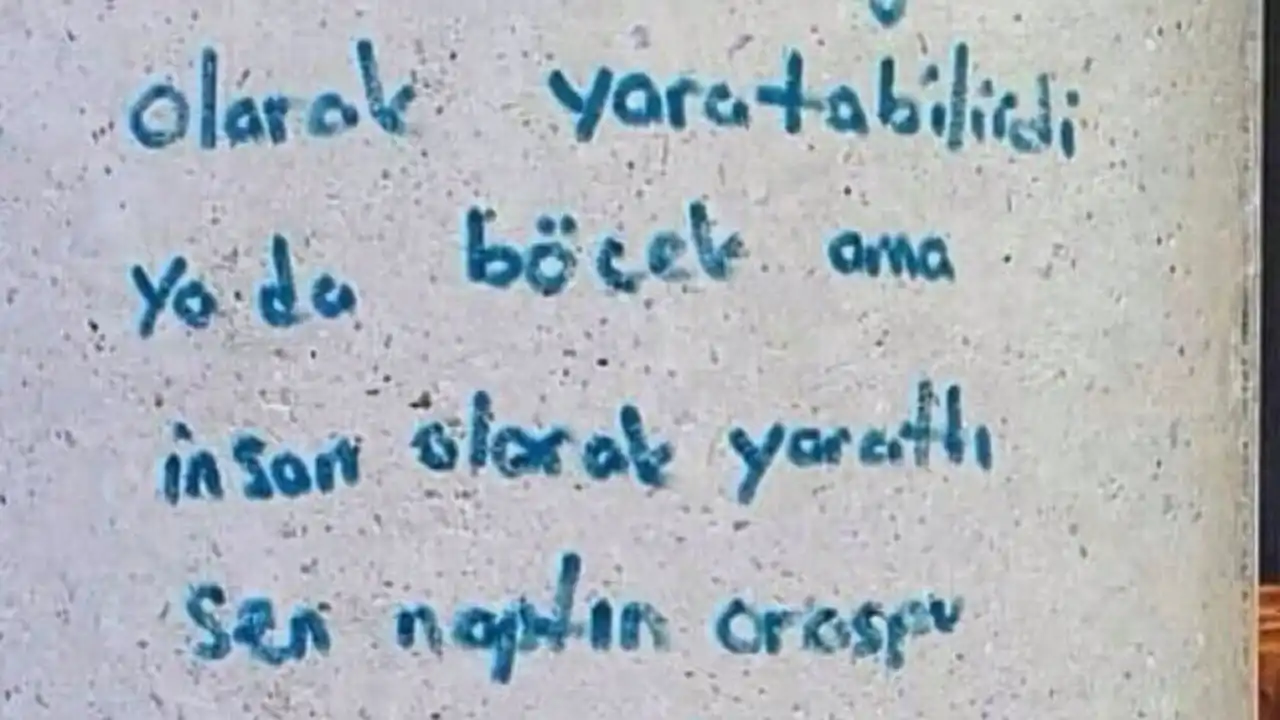 olarak yaratabilirdi
ya da böcek ama
insan olarak yarattı
sen naptın oraspu